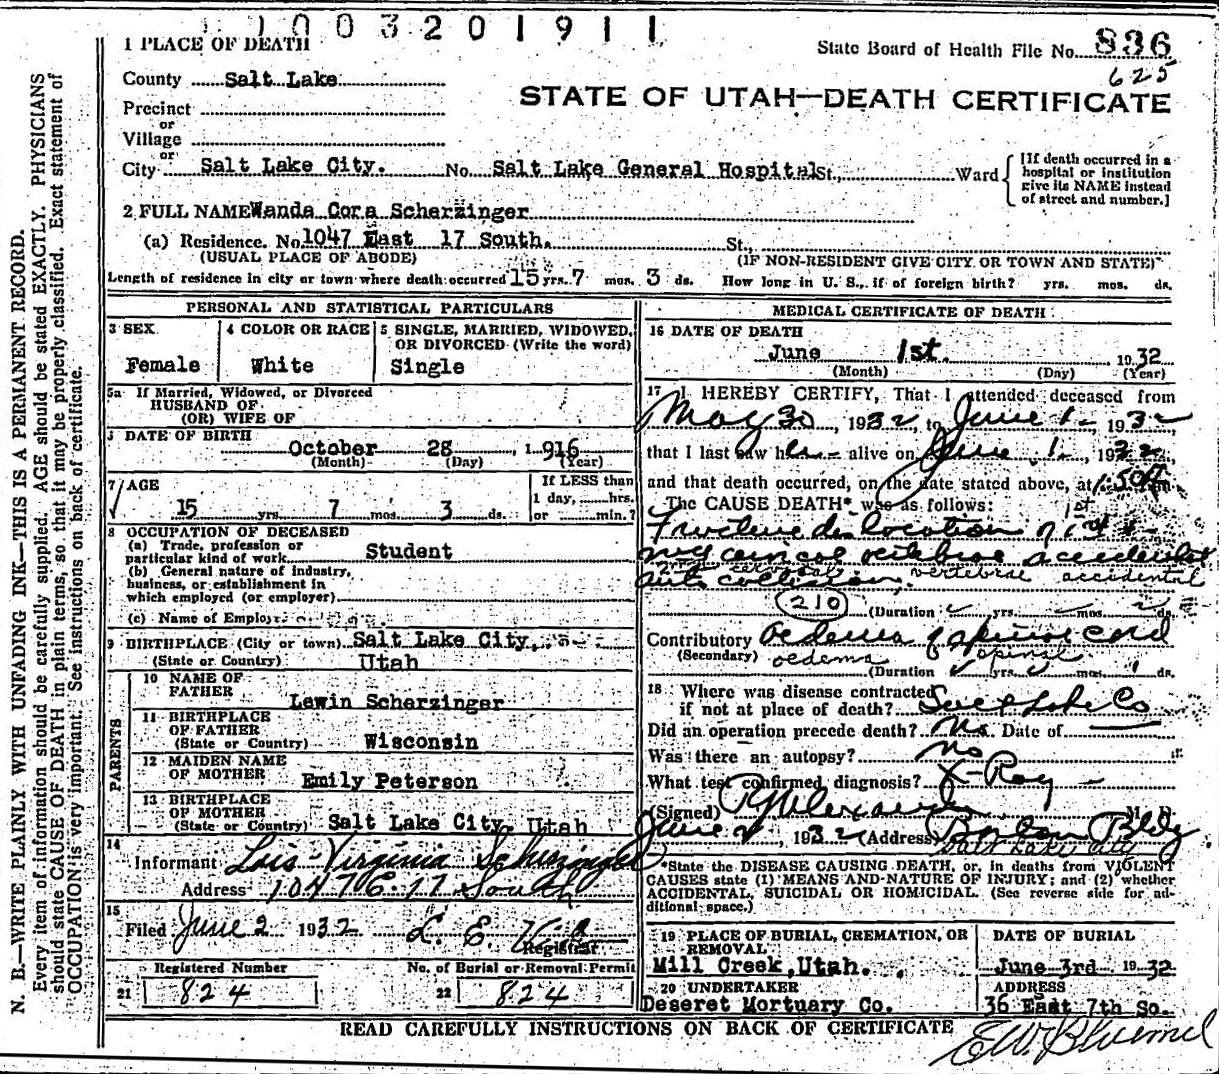 1003201911
1 PLACE OF DEATH
State Board of Health File No. 836
625
County Salt Lake
STATE OF UTAH—DEATH CERTIFICATE
Precinct
or
Village
or
City Salt Lake City. No. Salt Lake General Hospital St., Ward
[If death occurred in a
hospital or institution
give its NAME instead
of street and number.]
2 FULL NAME Wanda Cora Scherzinger
(a) Residence. No. 1047 East 17 South. St.,
(USUAL PLACE OF ABODE) (IF NON-RESIDENT GIVE CITY OR TOWN AND STATE)
Length of residence in city or town where death occurred 15 yrs. 7 mos. 3 ds. How long in U. S., if of foreign birth? yrs. mos. ds.
PERSONAL AND STATISTICAL PARTICULARS
3 SEX
Female
4 COLOR OR RACE
White
5 SINGLE, MARRIED, WIDOWED,
OR DIVORCED (Write the word)
Single
5a If Married, Widowed, or Divorced
HUSBAND OF
(OR) WIFE OF
DATE OF BIRTH
October 28, 1916
(Month) (Day) (Year)
7 AGE
15 yrs. 7 mos. 3 ds.
If LESS than
1 day, hrs.
or min.?
8 OCCUPATION OF DECEASED
(a) Trade, profession or
particular kind of work Student
(b) General nature of industry,
business, or establishment in
which employed (or employer)
(c) Name of Employer
9 BIRTHPLACE (City or town) Salt Lake City,
(State or Country) Utah
PARENTS
10 NAME OF
FATHER Lewin Scherzinger
11 BIRTHPLACE
OF FATHER
(State or Country) Wisconsin
12 MAIDEN NAME
OF MOTHER Emily Peterson
13 BIRTHPLACE
OF MOTHER
(State or Country) Salt Lake City, Utah
14
Informant Lois Virginia Scherzinger
Address 1047 E. 17 South
15
Filed June 2 1932 L. E.
Registrar
Registered Number
21 824
No. of Burial or Removal Permit
22 824
MEDICAL CERTIFICATE OF DEATH
16 DATE OF DEATH
June 1st. 1932
(Month) (Day) (Year)
17 I HEREBY CERTIFY, That I attended deceased from
May 30, 1932, to June 1-, 1932
that I last saw her alive on June 1-, 1932
and that death occurred, on the date stated above, at 1:50
The CAUSE DEATH* was as follows:
1st
Fracture dislocation of 1st +
2nd cervical vertebrae accidental
2nd cervical vertebrae accidental
auto collision.
210 (Duration yrs. mos. 2 ds.
Contributory Oedema of spinal cord
(Secondary) oedema spinal
(Duration yrs. 1 ds.
18 Where was disease contracted
if not at place of death? Salt Lake Co
Did an operation precede death? No. Date of
Was there an autopsy? no
What test confirmed diagnosis? X-Ray
(Signed) Alexander, M. D.
June 2, 1932 (Address) Boston Bldg
Salt Lake City
*State the DISEASE CAUSING DEATH, or, in deaths from VIOLENT
CAUSES state (1) MEANS AND NATURE OF INJURY; and (2) whether
ACCIDENTAL, SUICIDAL OR HOMICIDAL. (See reverse side for ad-
ditional space.)
19 PLACE OF BURIAL, CREMATION, OR
REMOVAL
Mill Creek, Utah.
DATE OF BURIAL
June 3rd 1932
20 UNDERTAKER
Deseret Mortuary Co.
ADDRESS
36 East 7th So.
READ CAREFULLY INSTRUCTIONS ON BACK OF CERTIFICATE
N. B.—WRITE PLAINLY WTH UNFADING INK—THIS IS A PERMANENT RECORD.
Every item of information should be carefully supplied. AGE should be stated EXACTLY. PHYSICIANS
should state CAUSE OF DEATH in plain terms, so that it may be properly classified. Exact statement of
OCCUPATION is very important. See instructions on back of certificate.